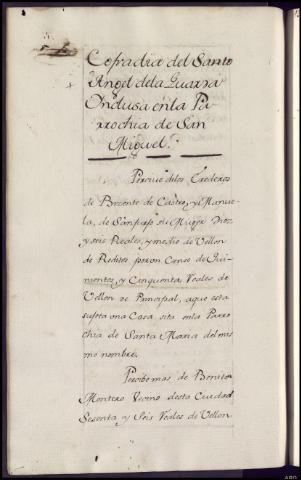 Cofradia del Santo
Angel dela Guarda
Ynclusa enla Pa
rrochia de San
Miguel.
Percive delos Erederos
de Bicente de Castro, y Manue
la, de San su Muger Diez
y seis Reales, y medio de Vellon
de Reditos por un Censo de Qui
nientos, y Cinquenta Reales de
Vellon de Principal, aque esta
sujeta una Casa sita enla Parro
chia de Santa Maria del mis
mo nombre.
Percibe mas de Benito
Montero Vecino desta Ciudad
Sesenta y Seis Reales de Vellon